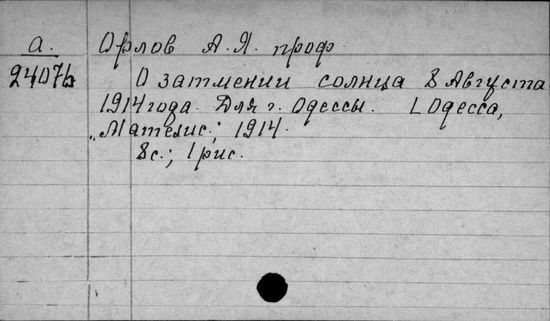 а. Орлов А.Я. проф.
24076 О затмении солнца 8 Августа
1914 года. Для г. Одессы. [Одесса,
„Матезис.; 1914.
8с.; 1 рис.